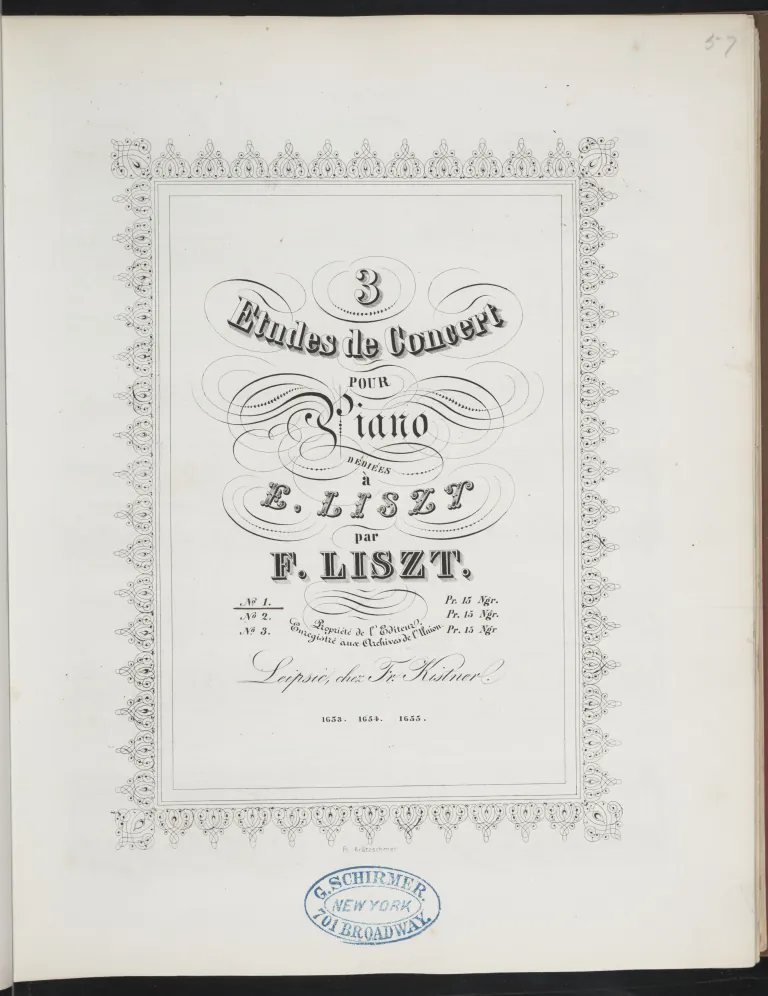 57
3
Etudes de Concert
POUR
Piano
DÉDIÉES
à
E. LISZT
par
F. LISZT.
No 1. Pr. 15 Ngr.
No 2. Pr. 15 Ngr.
No 3. Pr. 15 Ngr
Propriété de l'Editeur.
Enregistré aux Archives de l'Union.
Leipsic, chez Fr. Kistner.
1653. 1654. 1655.
Fr. Krätzschmer
G. SCHIRMER.
NEW YORK
701 BROADWAY.